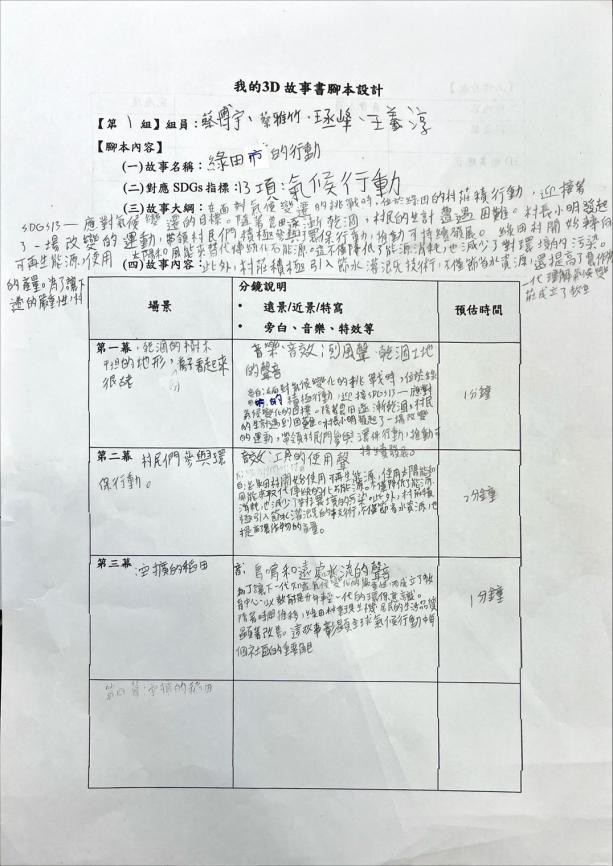 我的3D 故事書腳本設計
【第 1 組】組員：蔡博宇、蔡雅竹、珵峰、王義淳
【腳本內容】
(一)故事名稱：綠田市的行動
(二)對應 SDGs 指標：13項：氣候行動
(三)故事大綱：在面對氣候變遷的挑戰時，位於綠田的村莊積極行動，迎接著
SDGS13—應對氣候變遷的目標。隨著田逐漸乾涸，村民的生計遭遇困難。村長小明發起
了一場改變的運動，帶領村民們積極參與了環保行動，推動可持續發展。綠田村開始轉向
可再生能源，使用太陽和風能來替代傳統化石能源。這不僅降低了能源消耗，也減少了對環境的污染。
(四)故事內容：此外，村莊積極引入節水灌溉技術，不僅節省水資源，還提高了農作物
的產量。為了讓下一代理解氣候變
遷的嚴重性，村莊成立了教育
場景
分鏡說明
• 遠景/近景/特寫
• 旁白、音樂、特效等
預估時間
第一幕：乾涸的樹木
平坦的地形，房子看起來
很破
音樂、音效：刮風聲 乾涸土地
的聲音
旁白：面對氣候變化的挑戰時，位於綠
田市的積極行動，迎接SDGS13—應對
氣候變化的目標。隨著田逐漸乾涸，村民
的生計遇到困難。村長小明發起了一場改變
的運動，帶領村民們參與環保行動，推動可
持續發展。
1分鐘
第二幕 村民們參與環
保行動。
音效：工具的使用聲
白：綠田村開始使用可再生能源，使用太陽能和
風能來取代傳統的化石能源。不僅降低了能源
消耗，也減少了對環境的污染。此外，村莊積
極引入節水灌溉的技術，不僅節省水資源，也
提高了農作物的產量。
2分鐘
第三幕 空擴的稻田
音：鳥鳴和遠處水流的聲音
為了讓下一代知道氣候變化的嚴重性，而成立了教
育中心，以教育提升年輕一代的環保意識。
隨著時間推移，綠田村重現生機，居民的生活品質
顯著改善。這故事彰顯全球氣候行動中每
個社區的重要
1分鐘
第四幕：空擴的稻田